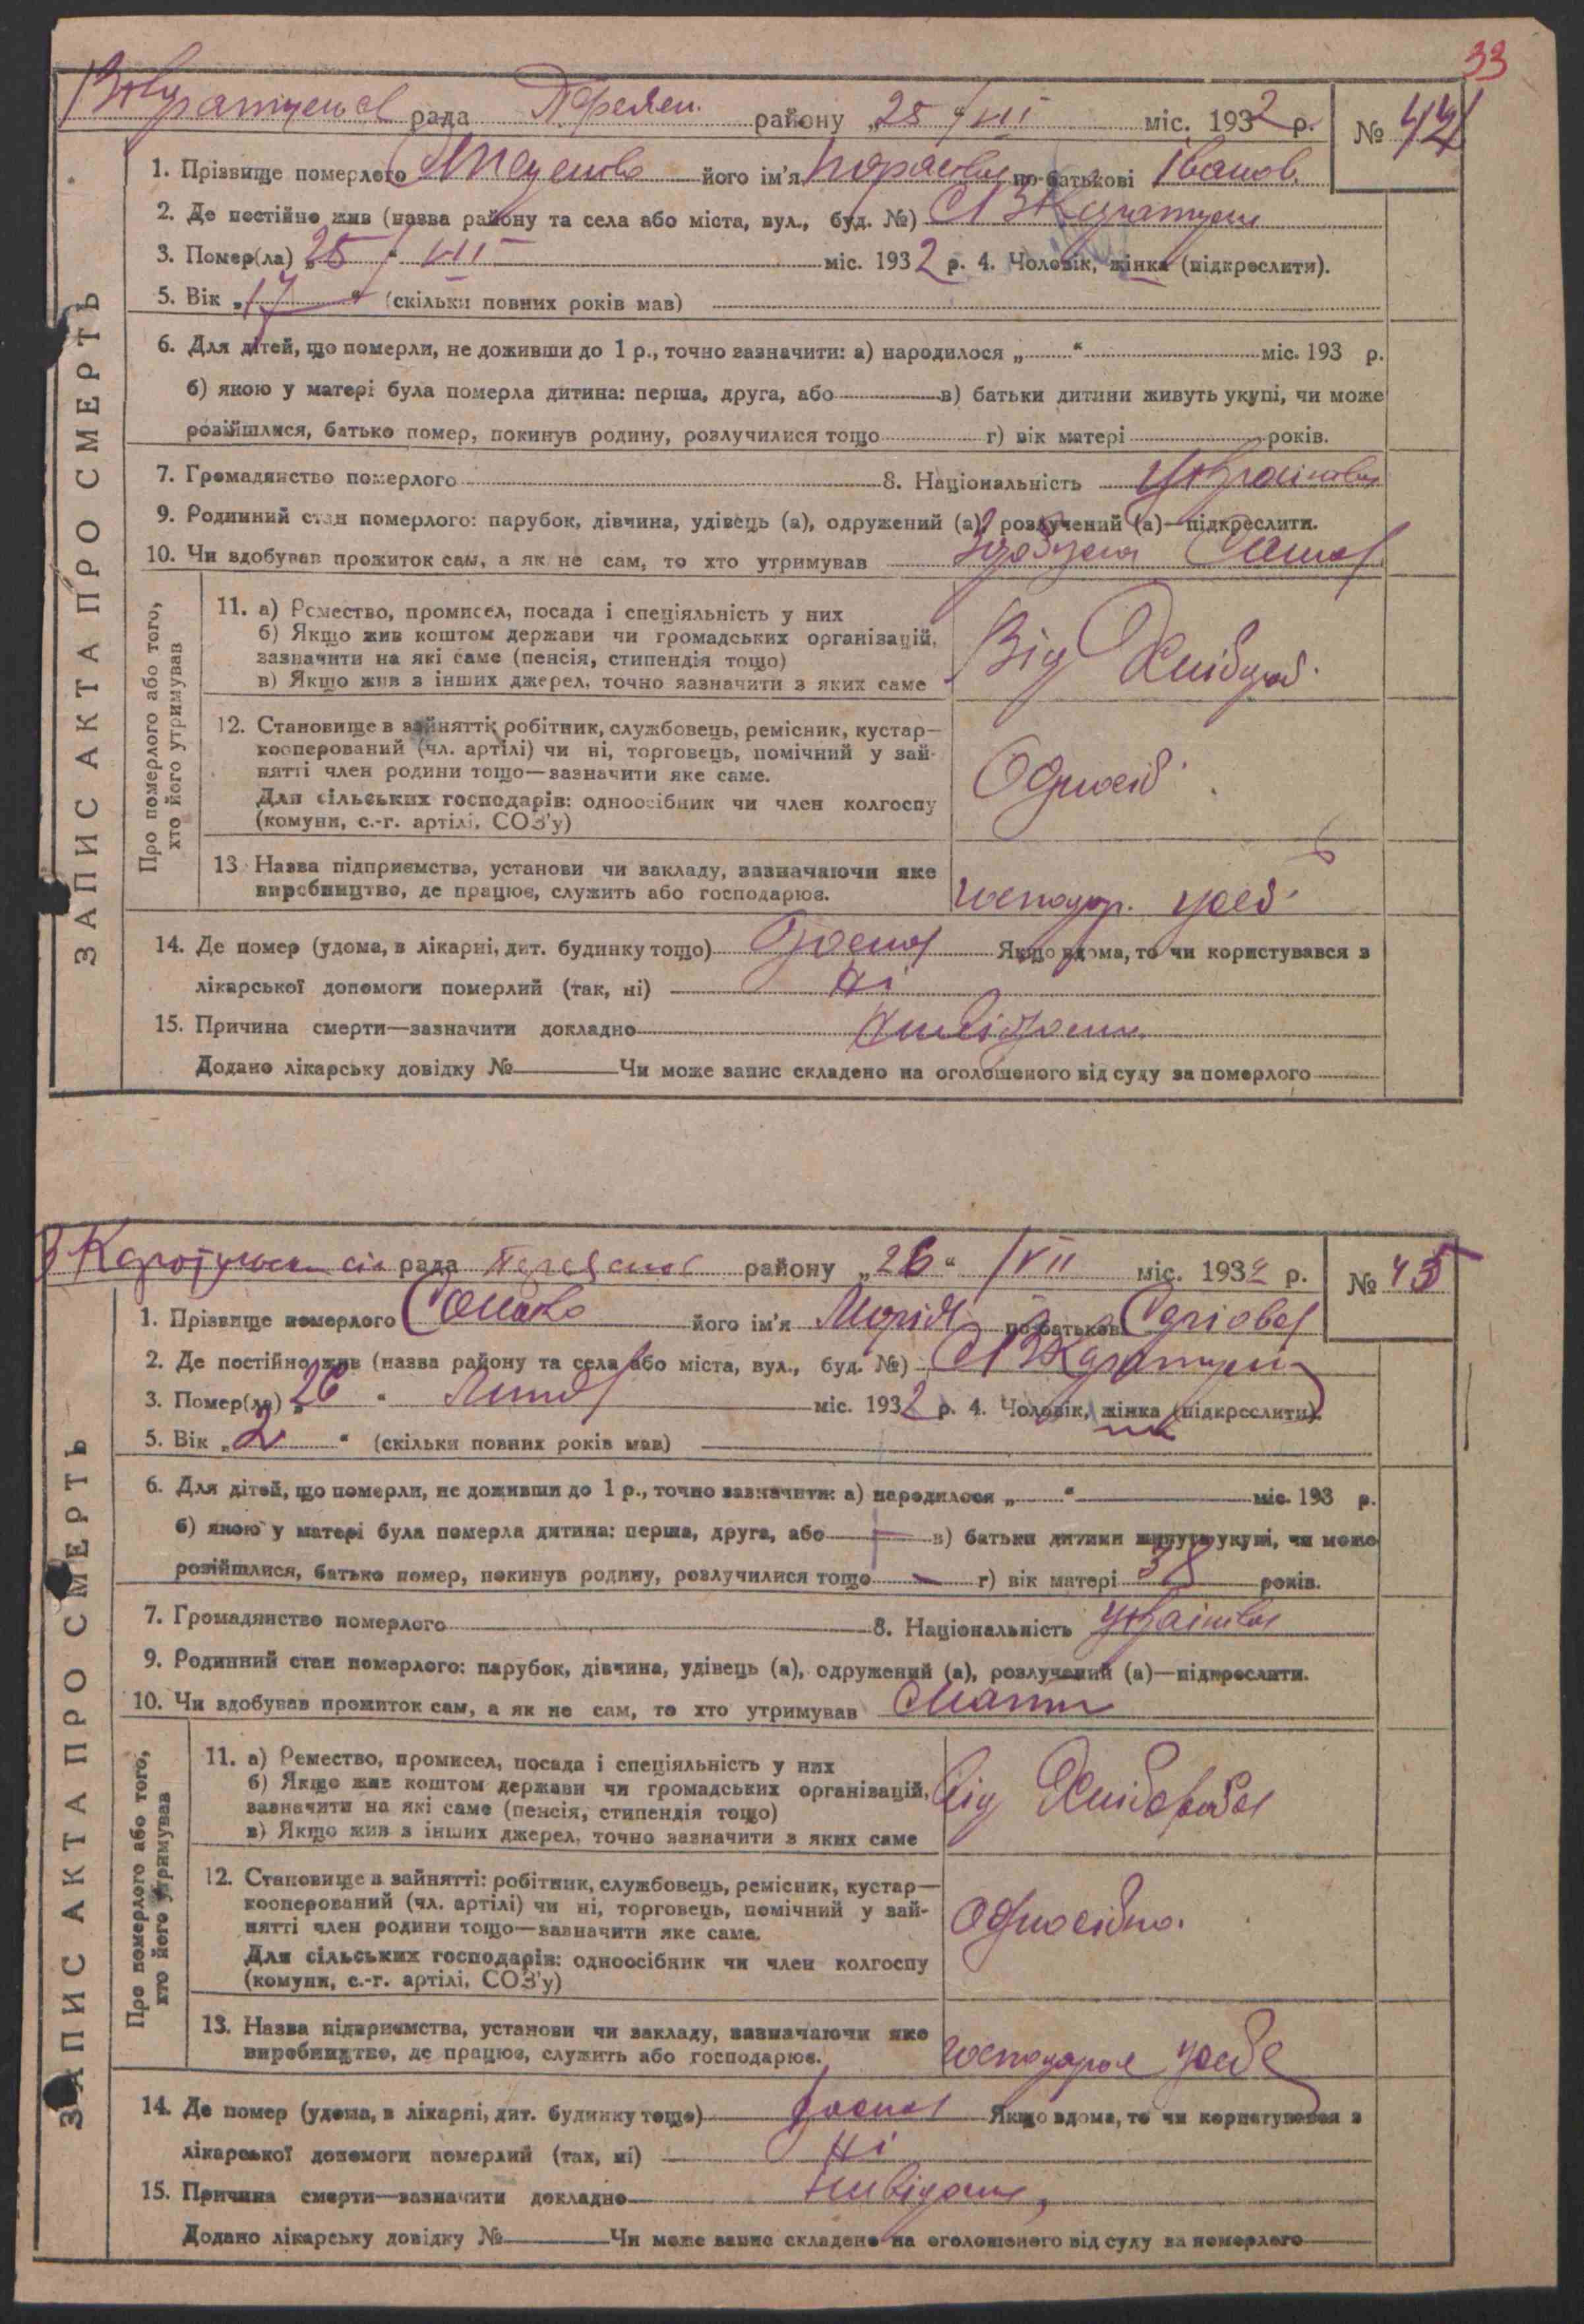 33
рада району „25 / VII міс. 1932 р. № 42
1. Прізвище померлого його ім'я Параска по-батькові Іванов.
2. Де постійно жив (назва району та села або міста, вул., буд. №) С
3. Помер(ла) „25 / “ VII міс. 1932 р. 4. Чоловік, жінка (підкреслити).
5. Вік „17“ (скільки повних років мав)
6. Для дітей, що померли, не доживши до 1 р., точно зазначити: а) народилося „ “ міс. 193 р.
б) якою у матері була померла дитина: перша, друга, або в) батьки дитини живуть укупі, чи може
розійшлися, батько помер, покинув родину, розлучилися тощо г) вік матері років.
7. Громадянство померлого 8. Національність Українка
9. Родинний стан померлого: парубок, дівчина, удівець (а), одружений (а), розлучений (а)—підкреслити.
10. Чи здобував прожиток сам, а як не сам, то хто утримував Здобувала Сама
ЗАПИС АКТА ПРО СМЕРТЬ
Про померлого або того, хто його утримував
11. а) Ремество, промисел, посада і спеціяльність у них
б) Якщо жив коштом держави чи громадських організацій,
зазначити на які саме (пенсія, стипендія тощо)
в) Якщо жив з інших джерел, точно зазначити з яких саме
Від Хлібороб.
12. Становище в зайнятті: робітник, службовець, ремісник, кустар—
кооперований (чл. артілі) чи ні, торговець, помічний у зай-
нятті член родини тощо—зазначити яке саме.
Для сільських господарів: одноосібник чи член колгоспу
(комуни, с.-г. артілі, СОЗ'у)
Одноосіб.
13. Назва підприємства, установи чи закладу, зазначаючи яке
виробництво, де працює, служить або господарює.
господар. у себ
14. Де помер (удома, в лікарні, дит. будинку тощо) Удома Якщо вдома, то чи користувався з
лікарської допомоги померлий (так, ні) Ні
15. Причина смерти—зазначити докладно Невідома
Додано лікарську довідку № Чи може запис складено на оголошеного від суду за померлого
рада району „26“ VII міс. 1932 р. № 43
1. Прізвище померлого його ім'я Марія по-батькові
2. Де постійно жив (назва району та села або міста, вул., буд. №) С
3. Помер(ла) „26“ Липня міс. 1932 р. 4. Чоловік, жінка (підкреслити).
5. Вік „2“ (скільки повних років мав)
6. Для дітей, що померли, не доживши до 1 р., точно зазначити: а) народилося „ “ міс. 193 р.
б) якою у матері була померла дитина: перша, друга, або в) батьки дитини живуть укупі, чи може
розійшлися, батько помер, покинув родину, розлучилися тощо г) вік матері 38 років.
7. Громадянство померлого 8. Національність Українка
9. Родинний стан померлого: парубок, дівчина, удівець (а), одружений (а), розлучений (а)—підкреслити.
10. Чи здобував прожиток сам, а як не сам, то хто утримував Мати
ЗАПИС АКТА ПРО СМЕРТЬ
Про померлого або того, хто його утримував
11. а) Ремество, промисел, посада і спеціяльність у них
б) Якщо жив коштом держави чи громадських організацій,
зазначити на які саме (пенсія, стипендія тощо)
в) Якщо жив з інших джерел, точно зазначити з яких саме
Від
12. Становище в зайнятті: робітник, службовець, ремісник, кустар—
кооперований (чл. артілі) чи ні, торговець, помічний у зай-
нятті член родини тощо—зазначити яке саме.
Для сільських господарів: одноосібник чи член колгоспу
(комуни, с.-г. артілі, СОЗ'у)
Одноосібно.
13. Назва підприємства, установи чи закладу, зазначаючи яке
виробництво, де працює, служить або господарює.
господарює у себе
14. Де помер (удома, в лікарні, дит. будинку тощо) удома Якщо вдома, то чи користувався з
лікарської допомоги померлий (так, ні) Ні
15. Причина смерти—зазначити докладно Невідома,
Додано лікарську довідку № Чи може запис складено на оголошеного від суду за померлого